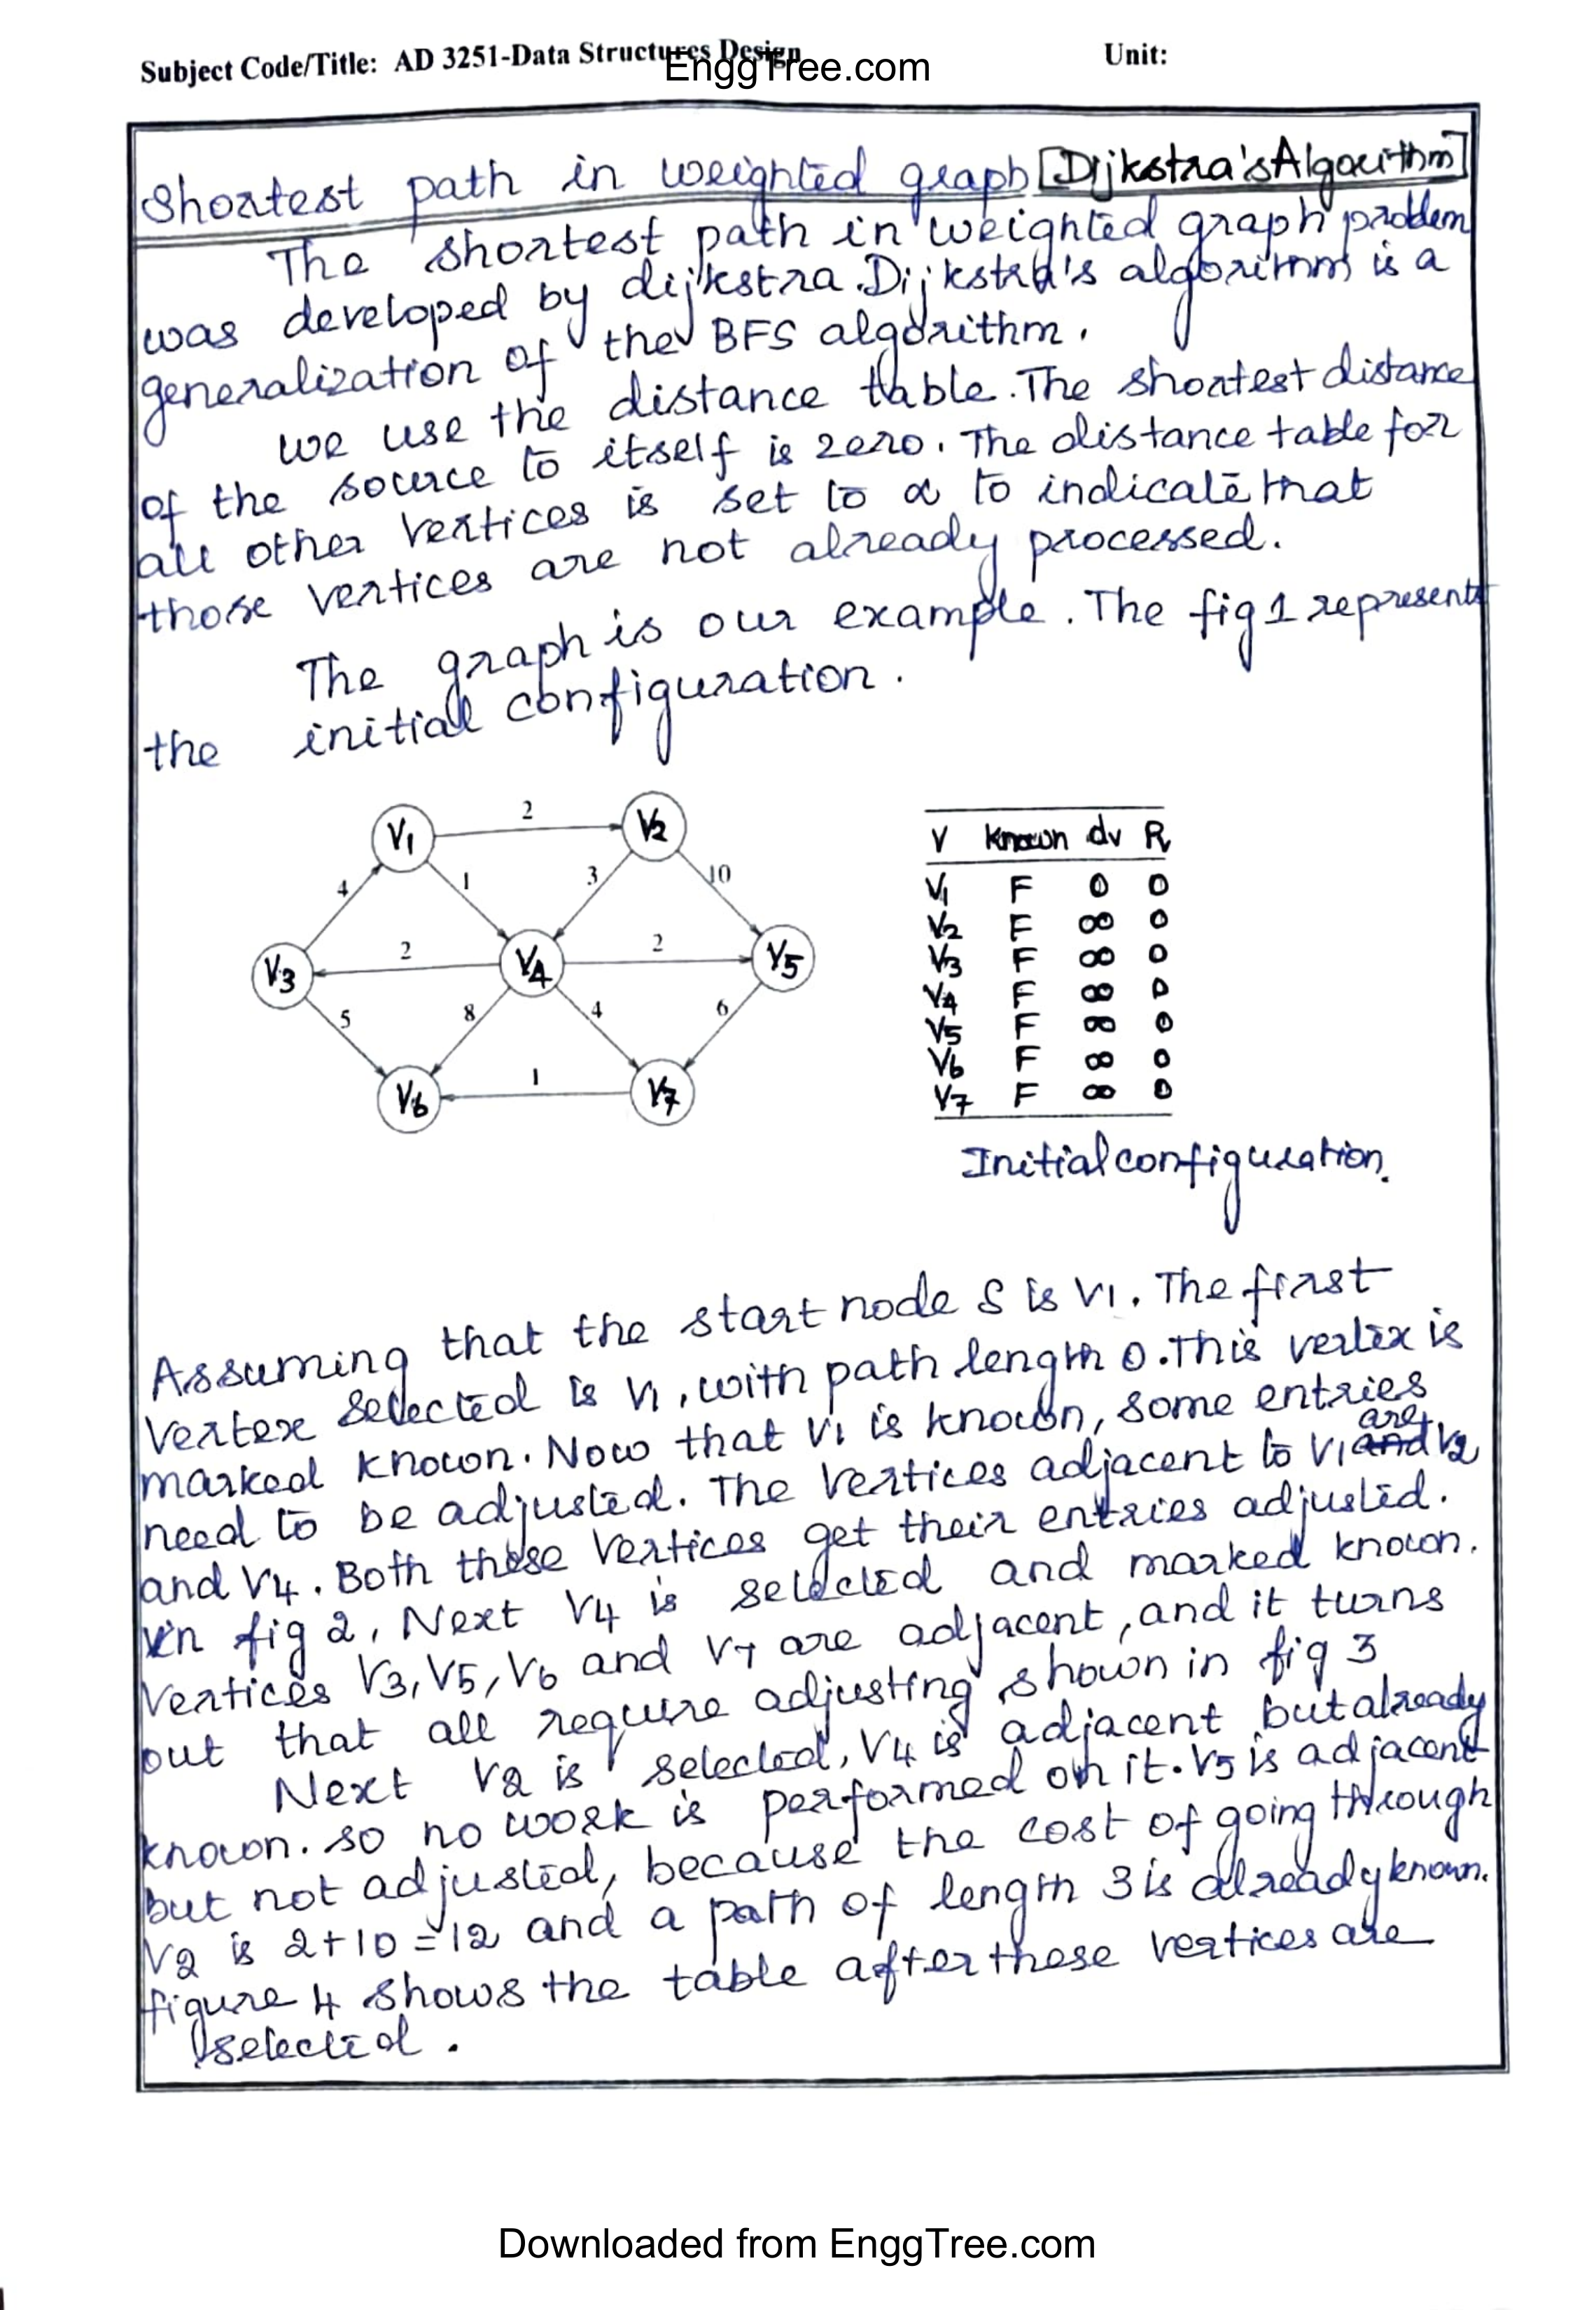 Subject Code/Title: AD 3251-Data Structures Design
EnggTree.com
Unit:
Shortest path in weighted graph [Dijkstra's Algorithm]
The shortest path in weighted graph problem
was developed by dijkstra. Dijkstra's algorithm is a
generalization of the BFS algorithm.
we use the distance table. The shortest distance
of the source to itself is zero. The distance table for
all other vertices is set to α to indicate that
those vertices are not already processed.
The graph is our example. The fig 1 represents
the initial configuration.
V1 2 V2
4 1 3 10
V3 2 V4 2 V5
5 8 4 6
V6 1 V7
V known dv Pv
V1 F 0 0
V2 F ∞ 0
V3 F ∞ 0
V4 F ∞ 0
V5 F ∞ 0
V6 F ∞ 0
V7 F ∞ 0
Initial configuration.
Assuming that the start node S is V1. The first
Vertex selected is V1, with path length 0. This vertex is
marked known. Now that V1 is known, some entries
need to be adjusted. The vertices adjacent to V1 are and V2
and V4. Both these vertices get their entries adjusted.
in fig 2, Next V4 is selected and marked known.
Vertices V3, V5, V6 and V7 are adjacent, and it turns
out that all require adjusting shown in fig 3
Next V2 is selected, V4 is adjacent but already
known. so no work is performed on it. V5 is adjacent
but not adjusted, because the cost of going through
V2 is 2+10=12 and a path of length 3 is already known.
figure 4 shows the table after these vertices are
selected.
Downloaded from EnggTree.com